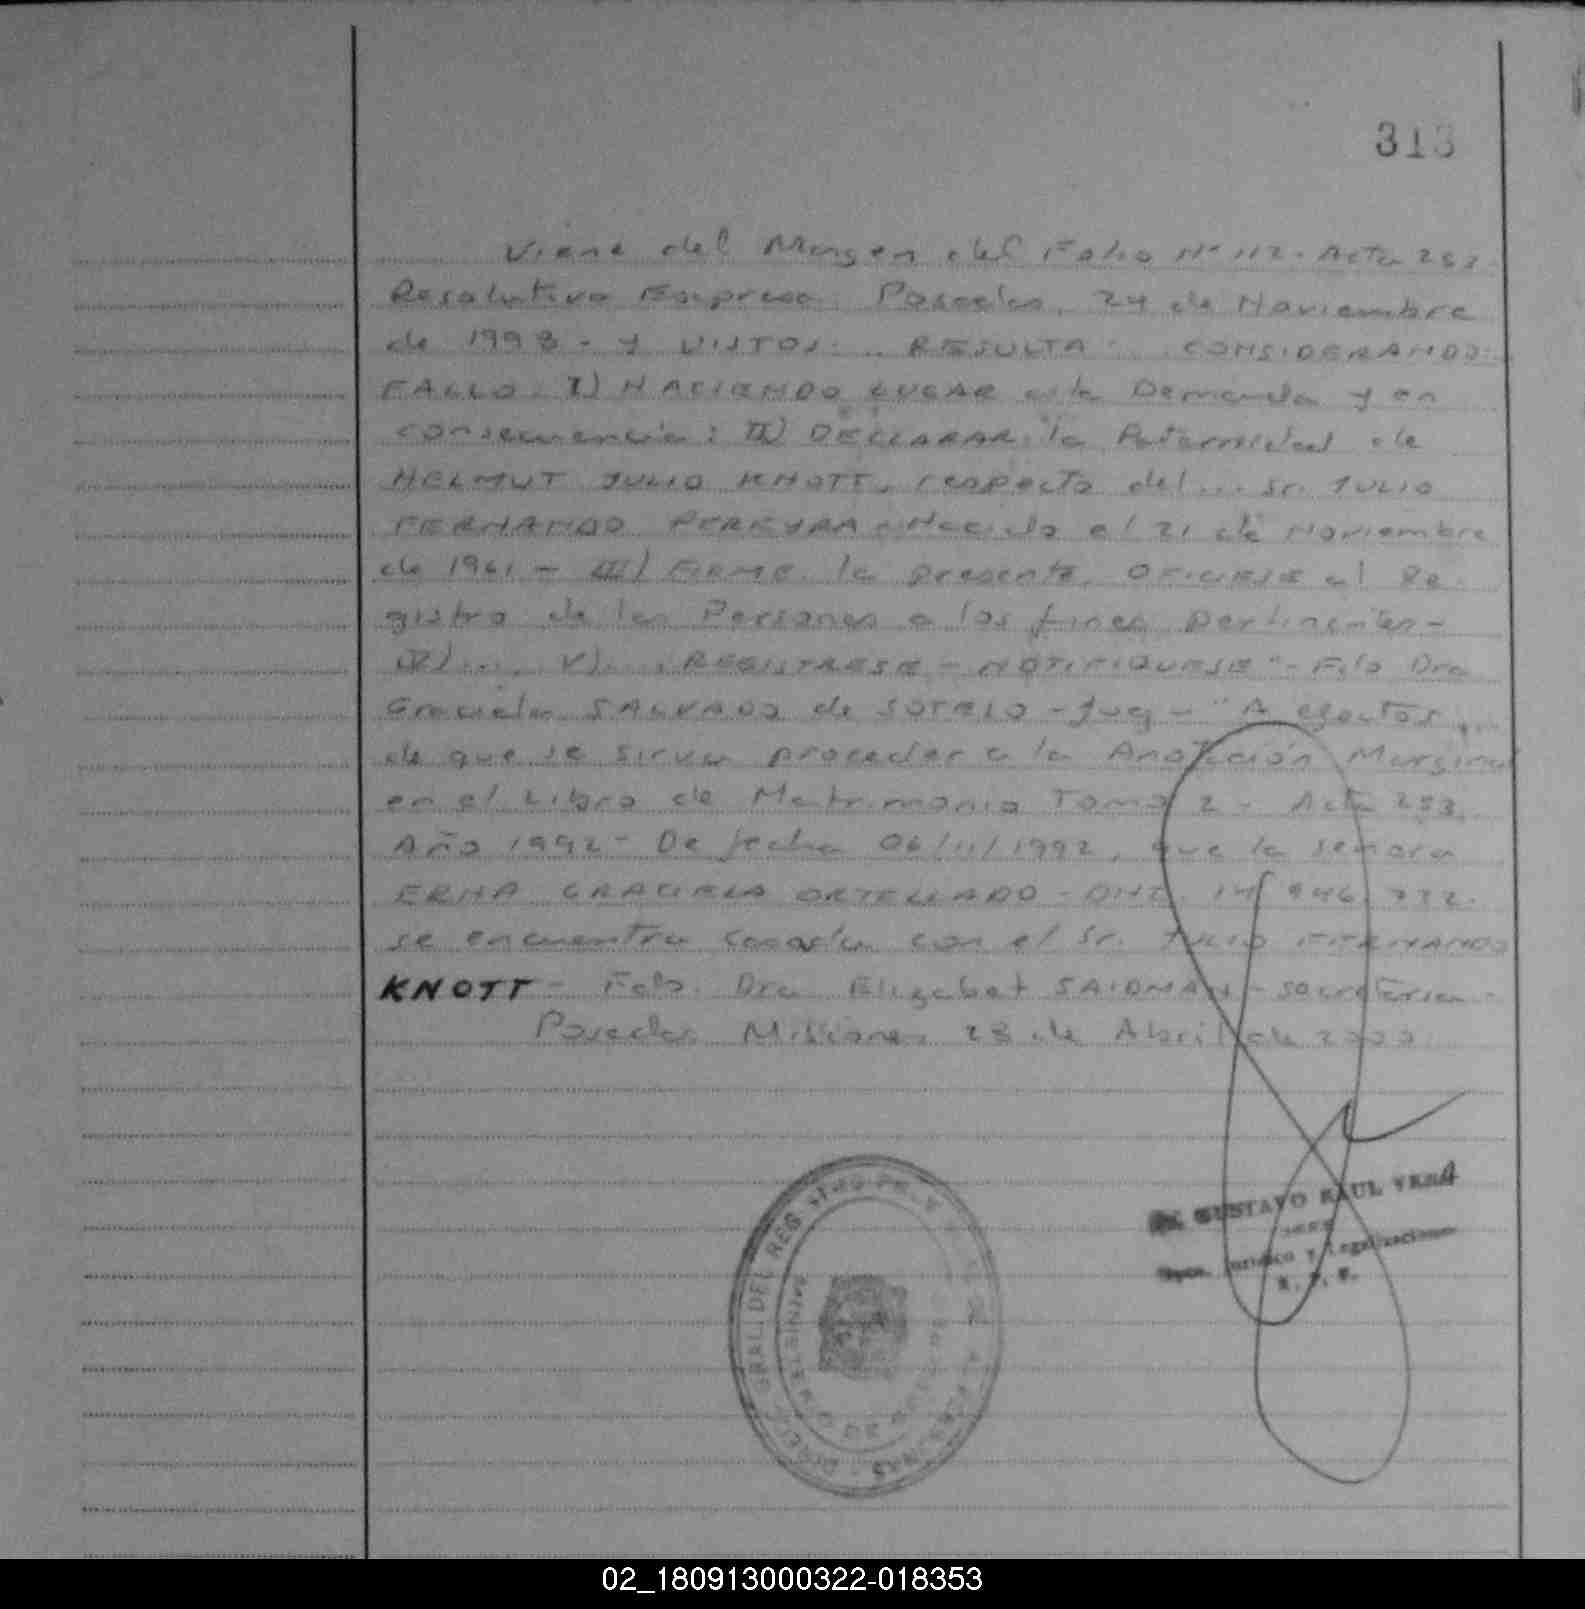 313
Viene del Margen del Folio Nº 112 - Acta 253
Resolutiva Expresa: Posadas, 24 de Noviembre
de 1998 - Y VISTOS: .. RESULTA: .. CONSIDERANDO:
FALLO: I) HACIENDO LUGAR a la Demanda y en
consecuencia: II) DECLARAR la Paternidad de
HELMUT JULIO KNOTT, respecto del ... Sr. JULIO
FERNANDO PEREYRA - Nacido el 21 de Noviembre
de 1961 - III) FIRME la presente, OFICIESE al Re-
gistro de las Personas a los fines pertinentes -
IV)... V)... REGISTRESE - NOTIFIQUESE" - Fdo Dra
Graciela SALVADO de SOTELO - Juez - "A efectos ...
de que se sirva proceder a la Anotación Marginal
en el Libro de Matrimonio Tomo 2 - Acta 253
Año 1992 - De fecha 06/11/1992, que la señora
ERMA GRACIELA ORTELLADO - DNI 14.946.732.
se encuentra casada con el Sr. JULIO FERNANDO
KNOTT - Fdo. Dra Elizabet SAIDMAN - Secretaria -
Posadas Misiones 28 de Abril de 2000
GUSTAVO RAUL VERA
JEFE
Dpto. Jurídico y Legalizaciones
R. P. P.
DIREC. GRAL. DEL REGISTRO PERSONAS
02_180913000322-018353